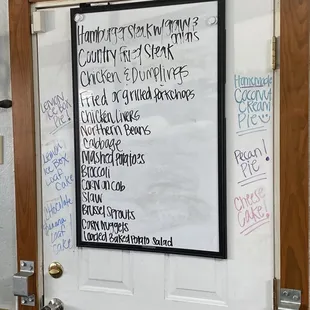 Hamburger Steak w/ gravy &
onions
Country Fried Steak
Chicken & Dumplings
Fried or grilled porkchops
Chicken Livers
Northern Beans
Cabbage
Mashed Potatoes
Broccoli
Corn on Cob
Slaw
Brussel Sprouts
Corn Nuggets
Loaded Baked Potato Salad
Lemon
Ice Box
Pie!
Lemon
Ice Box
Loaf
Cake
Chocolate
Loaf
Cake
Homemade
Coconut
Cream
Pie
Pecan!
Pie
Cheese
Cake!